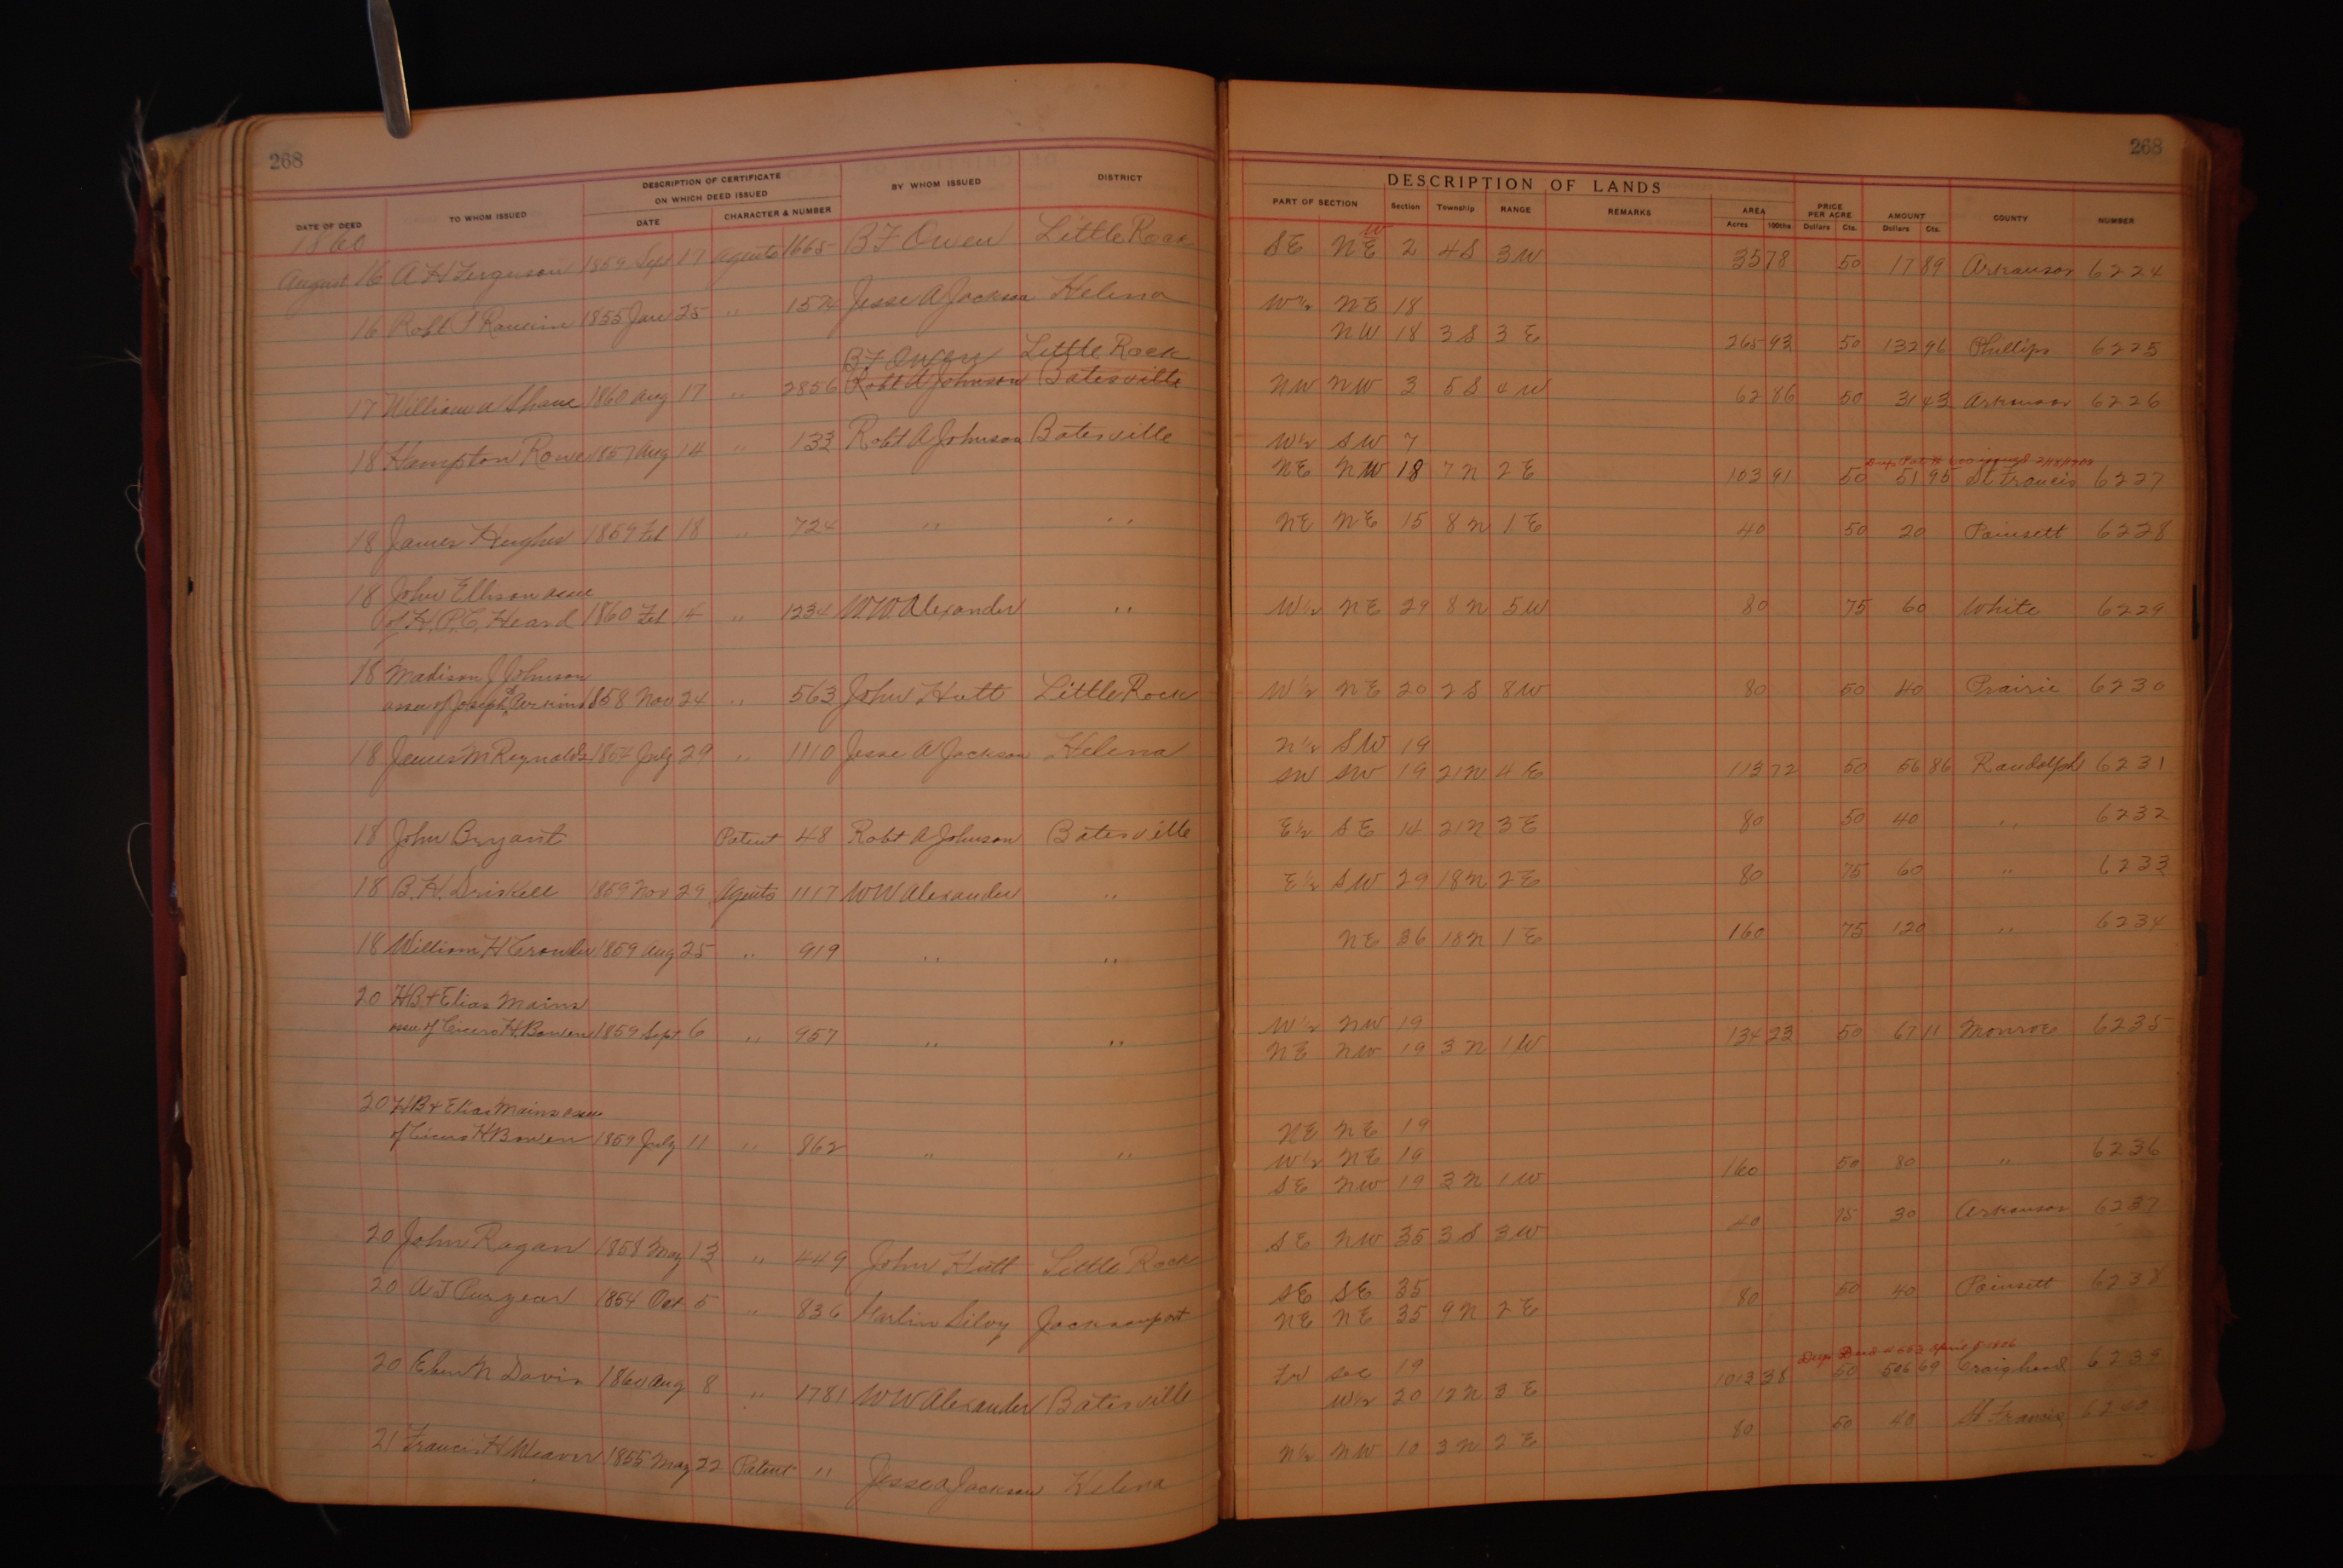 268
DESCRIPTION OF CERTIFICATE
ON WHICH DEED ISSUED
DATE OF DEED TO WHOM ISSUED DATE CHARACTER & NUMBER BY WHOM ISSUED DISTRICT
1860
August 16 A H Ferguson 1859 Sept 17 Agents 1665 B F Owen Little Rock
16 Robt F Rankin 1855 Jan 25 " 154 Jesse A Jackson Helena
B F Owen Little Rock
17 William W Shane 1860 Aug 17 " 2856 Robt A Johnson Batesville
18 Hampton Rowe 1857 Aug 14 " 133 Robt A Johnson Batesville
18 James Hughes 1859 Feb 18 " 724 " "
18 John Ellison assee
of H. P. C. Heard 1860 Feb 14 " 1234 W W Alexander "
18 Madison J Johnson
assee of Joseph Perkins 1858 Nov 24 " 563 John Hutt Little Rock
18 James M Reynolds 1854 July 29 " 1110 Jesse A Jackson Helena
18 John Bryant Patent 48 Robt A Johnson Batesville
18 B. H. Driskell 1859 Nov 29 Agents 1117 W W Alexander "
18 William H Crowder 1859 Aug 25 " 919 " "
20 H B & Elias Mains
assee of Cicero H. Bowen 1859 Sept 6 " 957 " "
20 H B & Elias Mains assee
of Cicero H Bowen 1859 July 11 " 862 " "
20 John Ragan 1858 May 13 " 449 John Hutt Little Rock
20 A J Puryear 1854 Oct 5 " 836 Silvy Jacksonport
20 Eben N Davis 1860 Aug 8 " 1781 W W Alexander Batesville
21 Francis H Weaver 1855 May 22 Patent " Jesse A Jackson Helena
268
DESCRIPTION OF LANDS
PART OF SECTION Section Township RANGE REMARKS AREA PRICE PER ACRE AMOUNT COUNTY NUMBER
Acres 100ths Dollars Cts. Dollars Cts.
W
SE NE 2 4 S 3 W 35 78 50 17 89 Arkansas 6224
W 1/2 NE 18
NW 18 3 S 3 E 265 93 50 132 96 Phillips 6225
NW NW 3 5 S 4 W 62 86 50 31 43 Arkansas 6226
W 1/2 SW 7
NE NW 18 7 N 2 E 103 91 50 51 95 St Francis 6227
NE NE 15 8 N 1 E 40 50 20 Poinsett 6228
W 1/2 NE 29 8 N 5 W 80 75 60 White 6229
W 1/2 NE 20 2 S 8 W 80 50 40 Prairie 6230
N 1/2 SW 19
SW SW 19 21 N 4 E 113 72 50 56 86 Randolph 6231
E 1/2 SE 14 21 N 3 E 80 50 40 " 6232
E 1/2 SW 29 18 N 2 E 80 75 60 " 6233
NE 36 18 N 1 E 160 75 120 " 6234
W 1/2 NW 19
NE NW 19 3 N 1 W 134 23 50 67 11 Monroe 6235
NE NE 19
W 1/2 NE 19
SE NW 19 3 N 1 W 160 50 80 " 6236
SE NW 35 3 S 3 W 40 75 30 Arkansas 6237
SE SE 35
NE NE 35 9 N 2 E 80 50 40 Poinsett 6238
Fr Sec 19
W 1/2 20 12 N 3 E 1013 38 50 506 69 Craighead 6239
N 1/2 NW 10 3 N 2 E 80 50 40 St Francis 6240